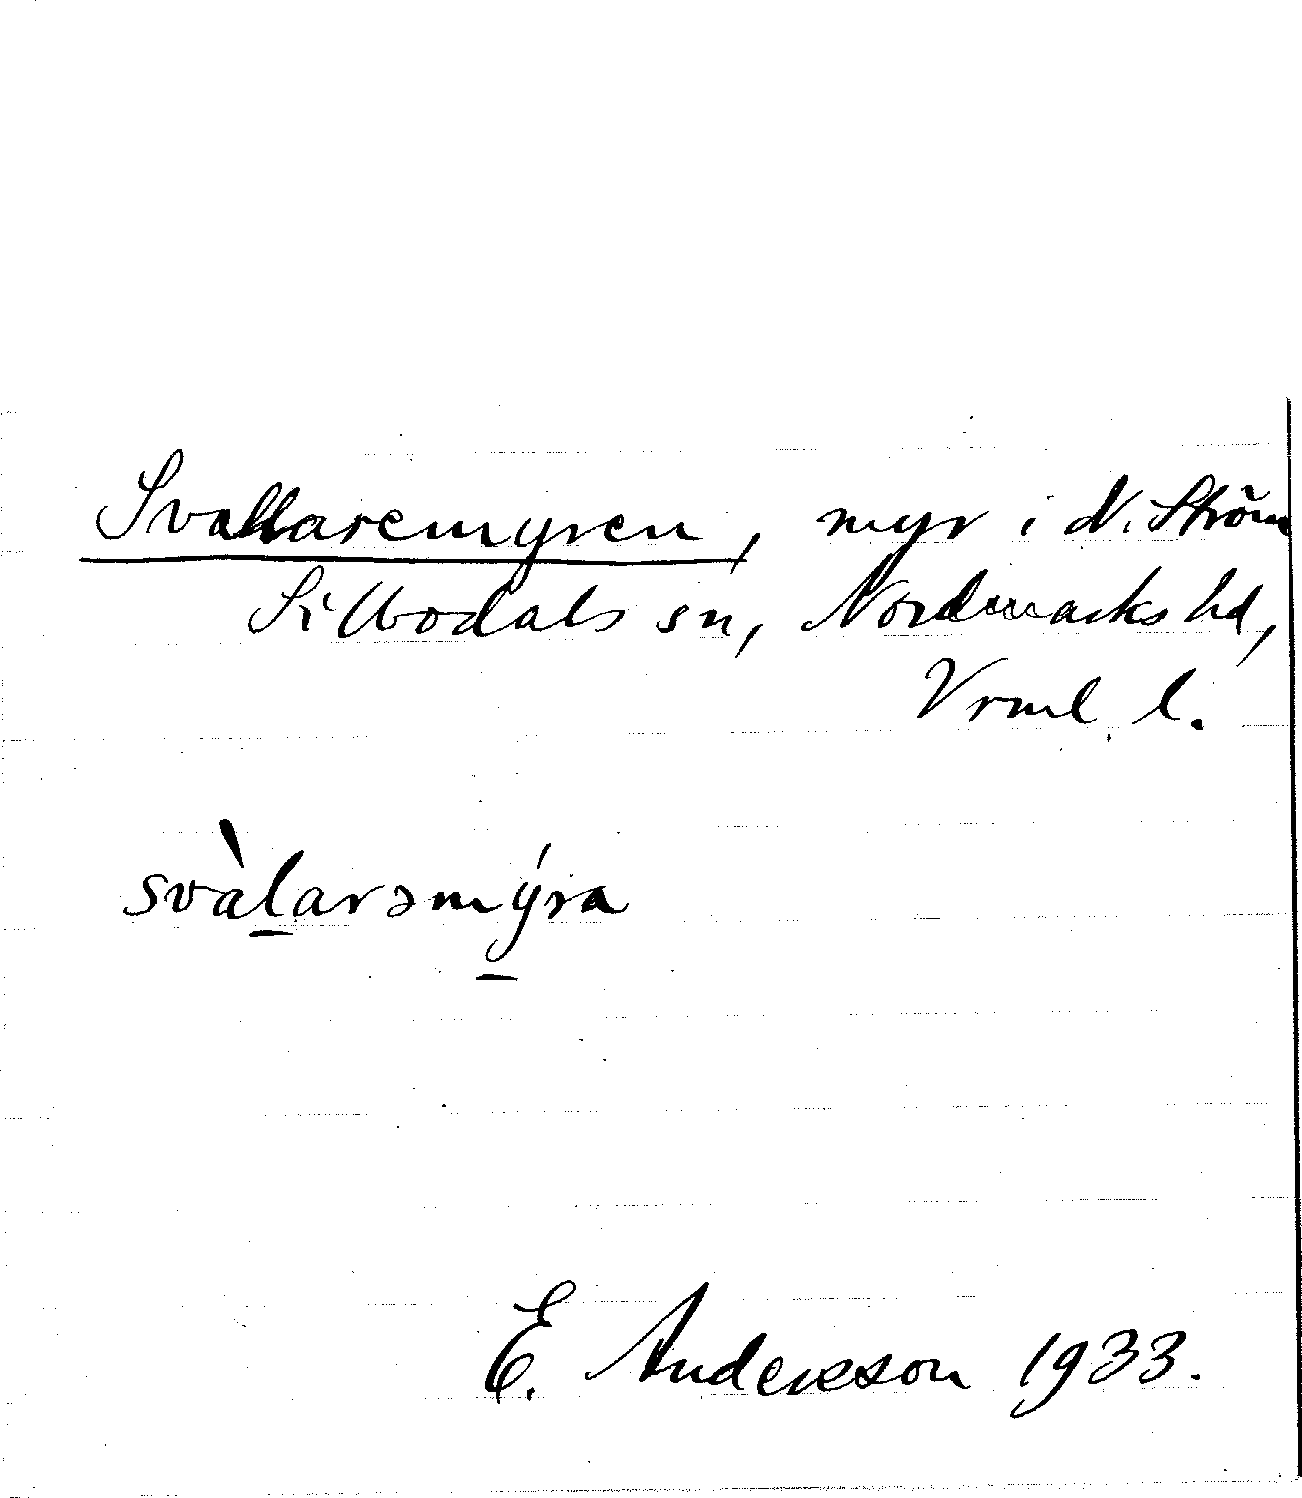 Svallaremyren, myr i N. Ström
Sillbodals sn, Nordmarks hd,
Vrml. l.
svàlarəmýra
E. Andersson 1933.